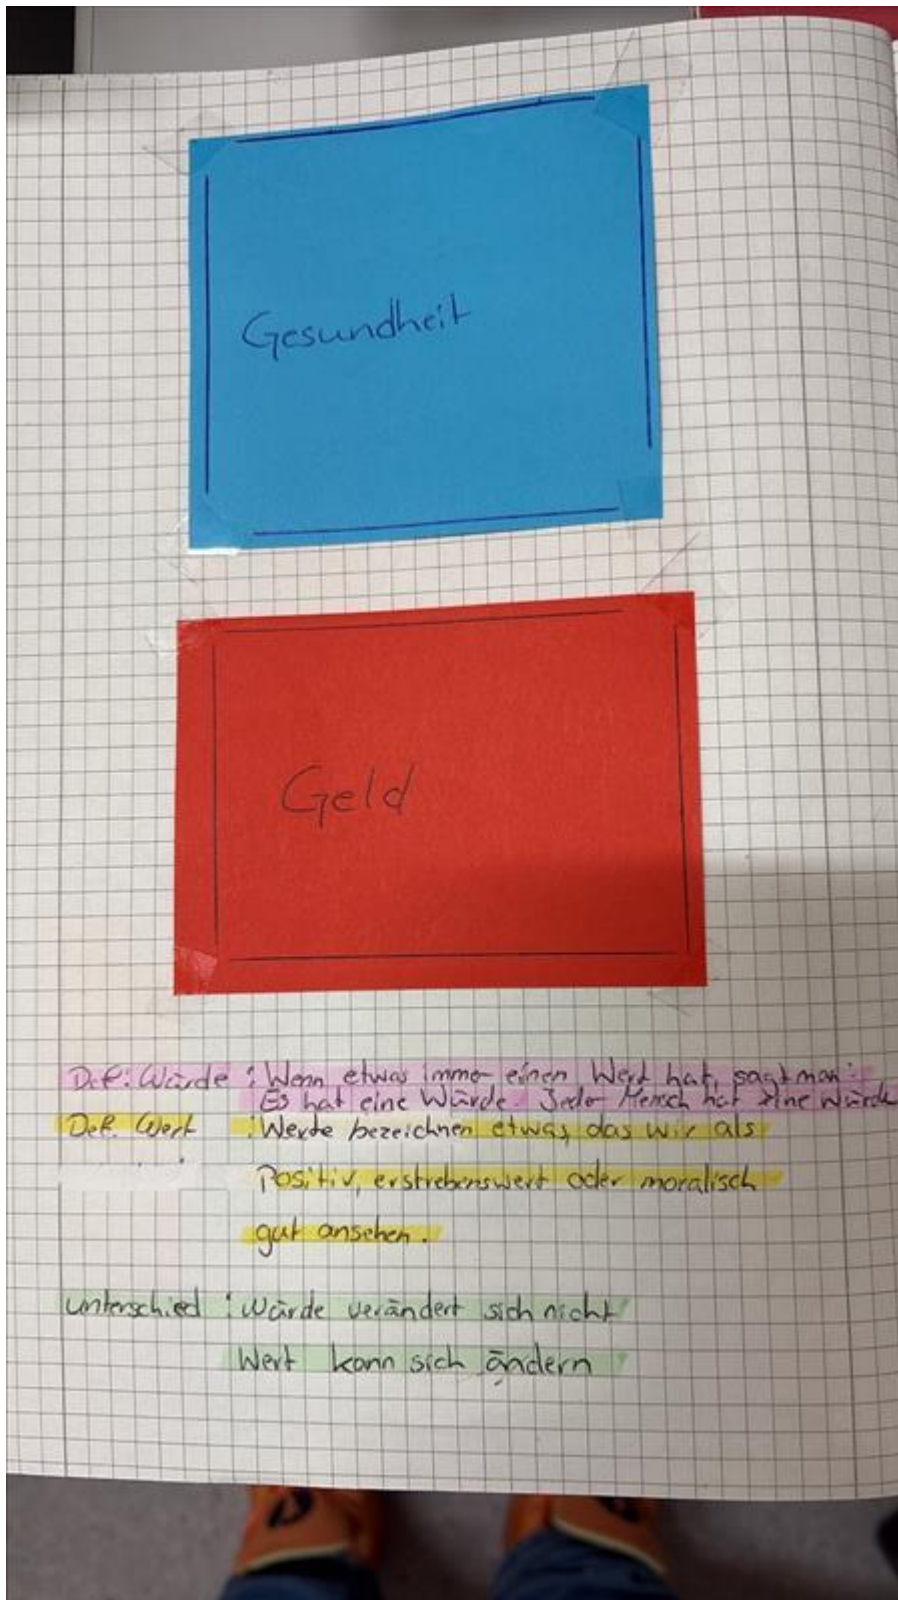 Gesundheit
Geld
Def: Würde : Wenn etwas immer einen Wert hat, sagt man:
Es hat eine Würde. Jeder Mensch hat eine Würde
Def. Wert : Werte bezeichnen etwas, das wir als
Positiv, erstrebenswert oder moralisch
gut ansehen.
unterschied : Würde verändert sich nicht
Wert kann sich ändern